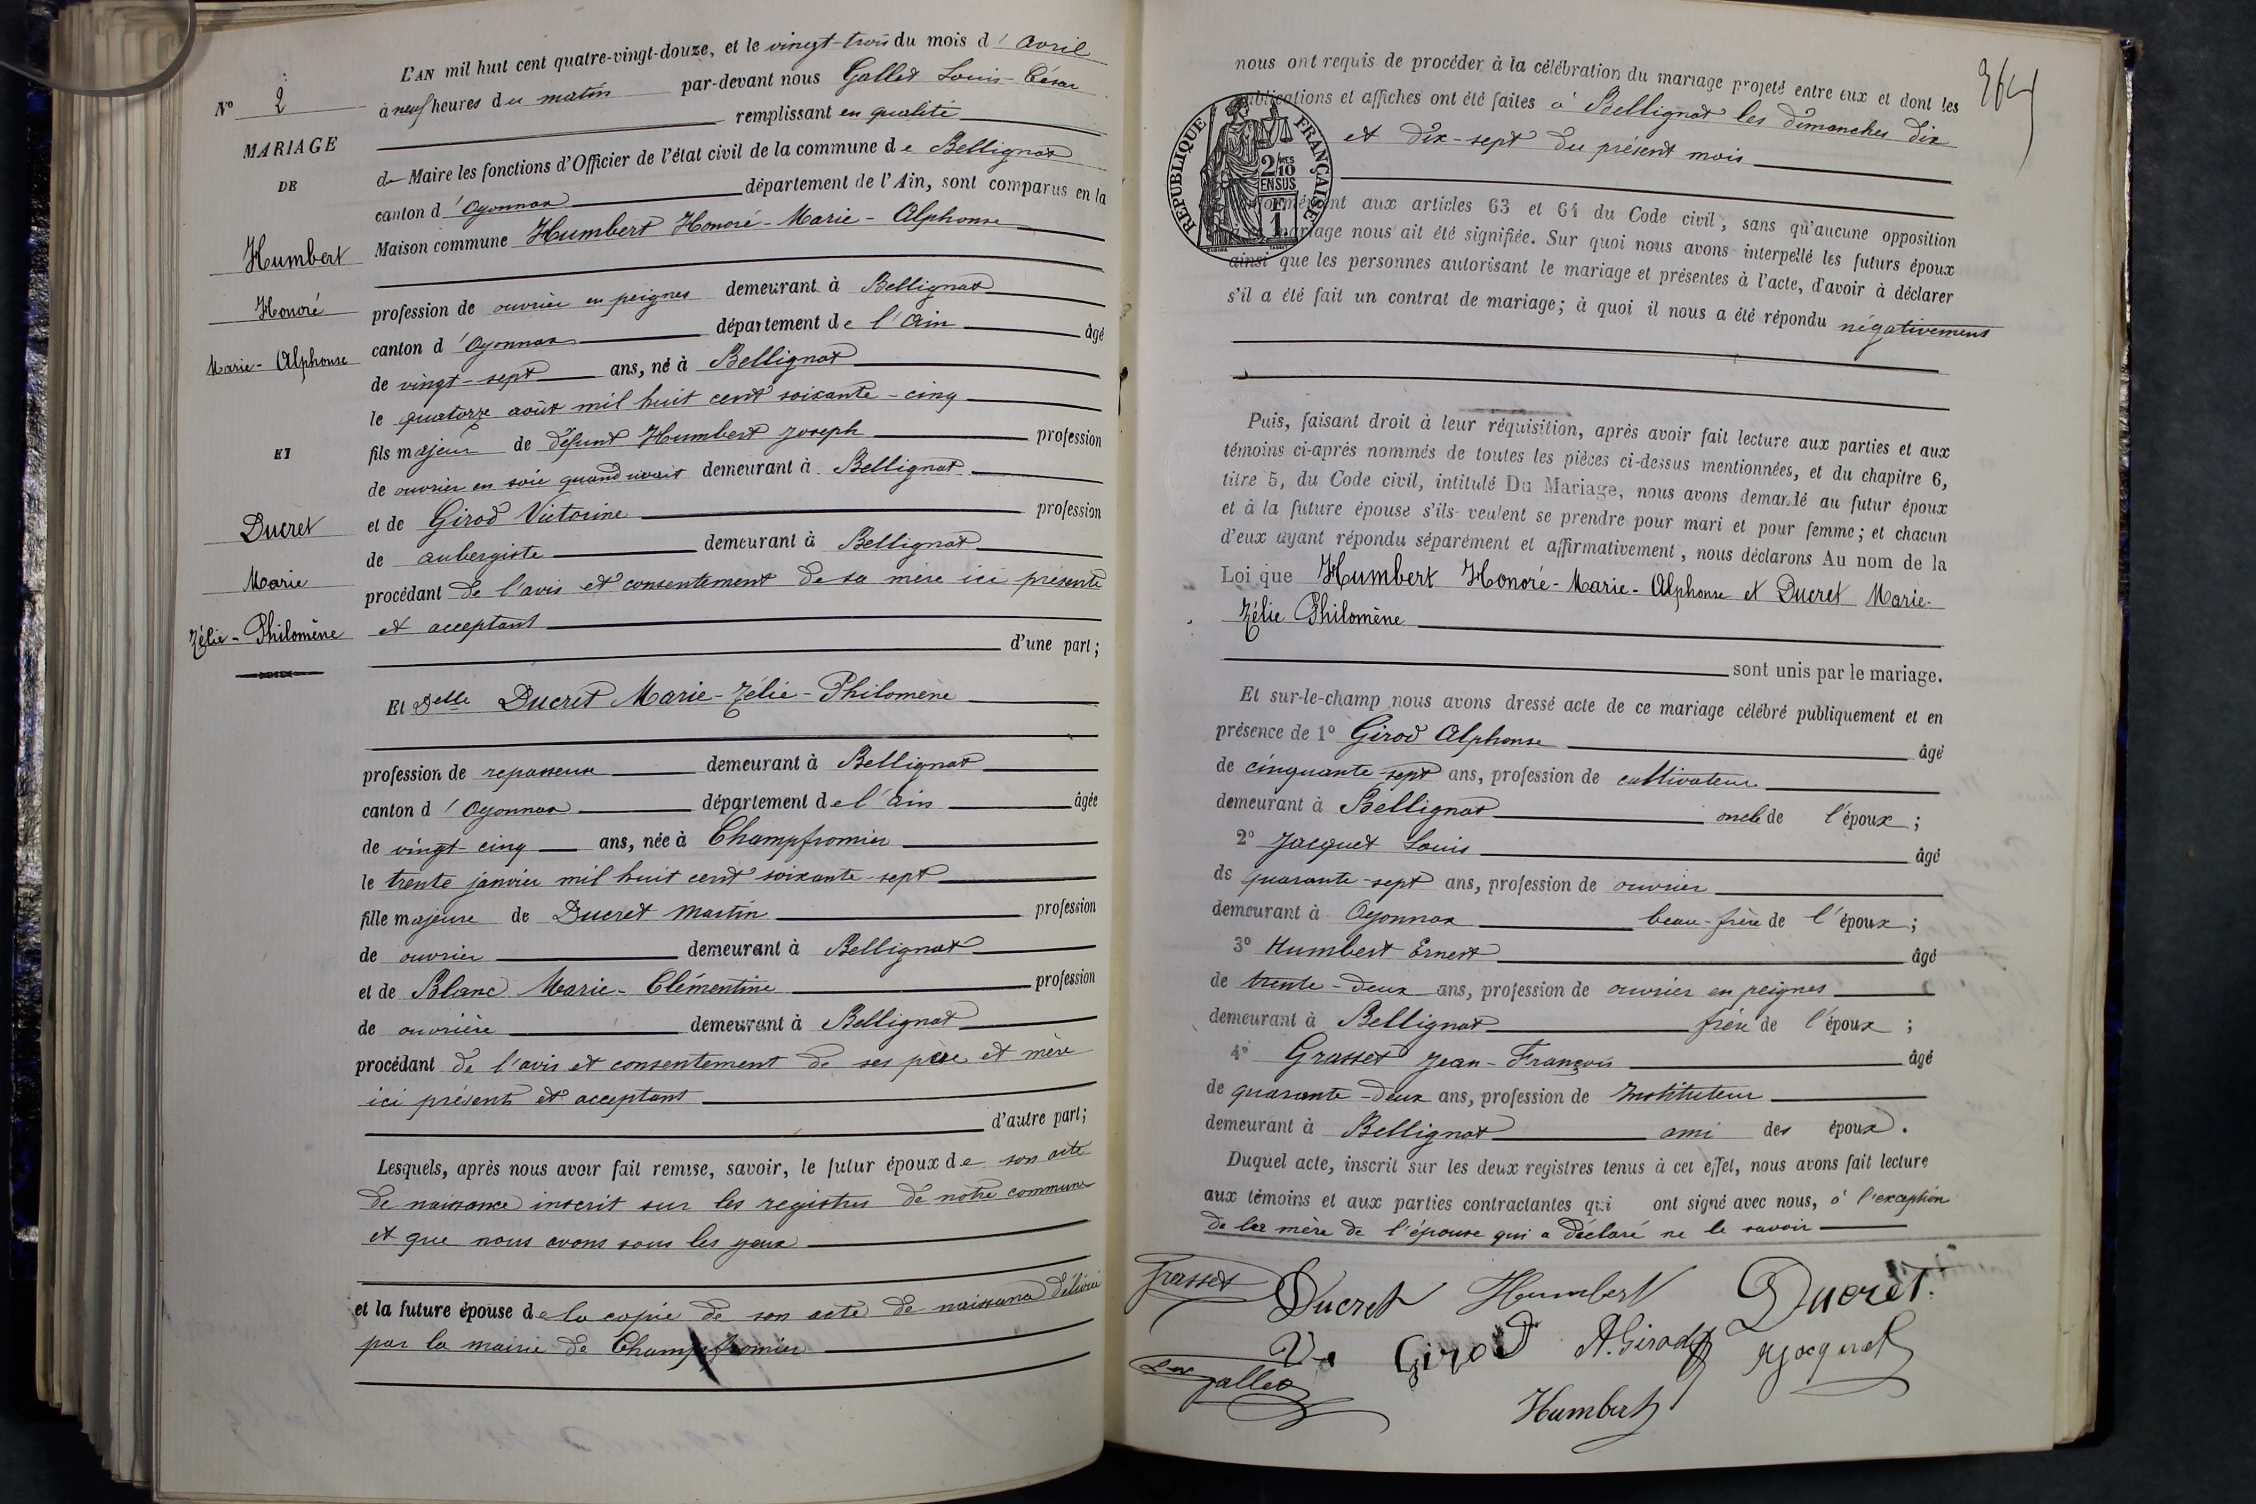 L'AN mil huit cent quatre-vingt-douze, et le vingt-trois du mois d'avril
à neuf heures du matin par-devant nous Gallet Louis-César
remplissant en qualité
de Maire les fonctions d'Officier de l'état civil de la commune de Bellignat
canton d'Oyonnax département de l'Ain, sont comparus en la
Maison commune Humbert Honoré-Marie-Alphonse
profession de ouvrier en peignes demeurant à Bellignat
canton d'Oyonnax département de l'Ain âgé
de vingt-sept ans, né à Bellignat
le quatorze août mil huit cent soixante-cinq
fils majeur de défunt Humbert Joseph profession
de ouvrier en soie quand vivait demeurant à Bellignat
et de Girod Victorine profession
de aubergiste demeurant à Bellignat
procédant de l'avis et consentement de sa mère ici présente
et acceptant
d'une part;
Et Delle Ducret Marie-Zélie-Philomène
profession de repasseuse demeurant à Bellignat
canton d'Oyonnax département de l'Ain âgée
de vingt-cinq ans, née à Champfromier
le trente janvier mil huit cent soixante-sept
fille majeure de Ducret Martin profession
de ouvrier demeurant à Bellignat
et de Blanc Marie-Clémentine profession
de ouvrière demeurant à Bellignat
procédant de l'avis et consentement de ses père et mère
ici présents et acceptant
d'autre part;
Lesquels, après nous avoir fait remise, savoir, le futur époux de son acte
de naissance inscrit sur les registres de notre commune
et que nous avons sous les yeux
et la future épouse de la copie de son acte de naissance délivré
par la mairie de Champfromier
No 2
MARIAGE
DE
Humbert
Honoré
Marie-Alphonse
ET
Ducret
Marie
Zélie-Philomène
364
nous ont requis de procéder à la célébration du mariage projeté entre eux et dont les
publications et affiches ont été faites à Bellignat les dimanches dix
et dix-sept du présent mois
RÉPUBLIQUE FRANÇAISE
2/10 MES
EN SUS
1 F
conformément aux articles 63 et 64 du Code civil, sans qu'aucune opposition
mariage nous ait été signifiée. Sur quoi nous avons interpellé les futurs époux
ainsi que les personnes autorisant le mariage et présentes à l'acte, d'avoir à déclarer
s'il a été fait un contrat de mariage; à quoi il nous a été répondu négativement
Puis, faisant droit à leur réquisition, après avoir fait lecture aux parties et aux
témoins ci-après nommés de toutes les pièces ci-dessus mentionnées, et du chapitre 6,
titre 5, du Code civil, intitulé Du Mariage, nous avons demandé au futur époux
et à la future épouse s'ils veulent se prendre pour mari et pour femme; et chacun
d'eux ayant répondu séparément et affirmativement, nous déclarons Au nom de la
Loi que Humbert Honoré-Marie-Alphonse et Ducret Marie-
Zélie Philomène
sont unis par le mariage.
Et sur-le-champ nous avons dressé acte de ce mariage célébré publiquement et en
présence de 1o Girod Alphonse âgé
de cinquante-sept ans, profession de cultivateur
demeurant à Bellignat oncle de l'époux;
2o Jacquet Louis âgé
de quarante-sept ans, profession de ouvrier
demeurant à Oyonnax beau-frère de l'époux;
3o Humbert Ernest âgé
de trente-deux ans, profession de ouvrier en peignes
demeurant à Bellignat frère de l'époux;
4o Grasset Jean-François âgé
de quarante-deux ans, profession de Instituteur
demeurant à Bellignat ami des époux.
Duquel acte, inscrit sur les deux registres tenus à cet effet, nous avons fait lecture
aux témoins et aux parties contractantes qui ont signé avec nous, à l'exception
de la mère de l'épouse qui a déclaré ne le savoir
Grasset Ducret Humbert Ducret.
Ve Girod A. Girod Jacquet
Gallet
Humbert